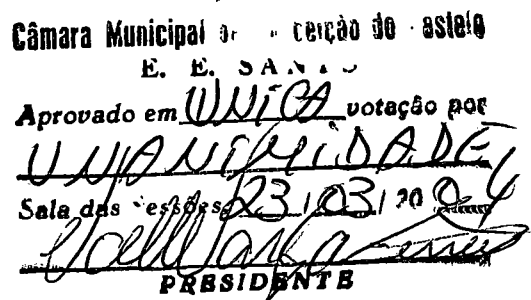 Câmara Municipal
E. E. SANTO
Aprovado em ÚNICA votação por
UNANIMIDADE
Sala das sessões, 23/03/2004
PRESIDENTE